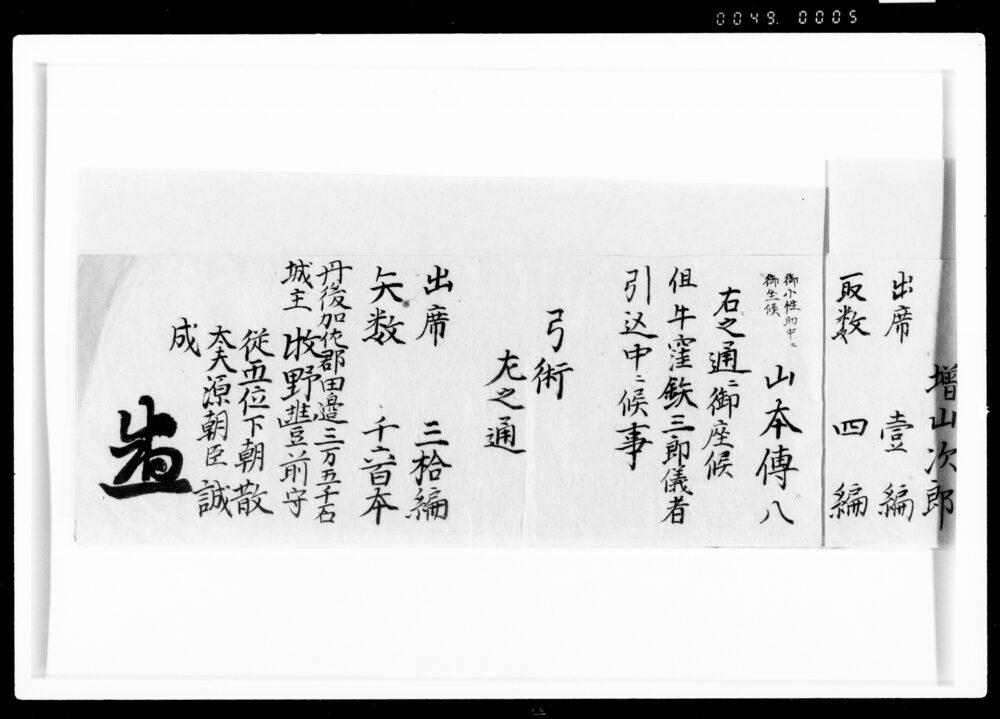 0049. 0005
増山次郎
出席 壹編
取数 四編
御小性助中ニ
御生候
山本傳八
右之通ニ御座候
但牛窪鉄三郎儀者
引込中ニ候事
弓術
左之通
出席 三拾編
矢数 千六百本
丹後加佐郡田邉三万五千石
城主牧野豊前守
従五位下朝散
太夫源朝臣誠
成